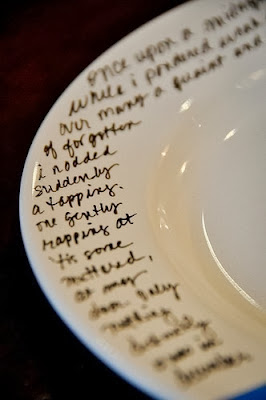 once upon a midnight
while i pondered weak
over many a quaint and
of forgotten
i nodded
suddenly
a tapping.
one gently
rapping at
'tis some
muttered,
at my
door. only
nothing
distinctly
was in
december